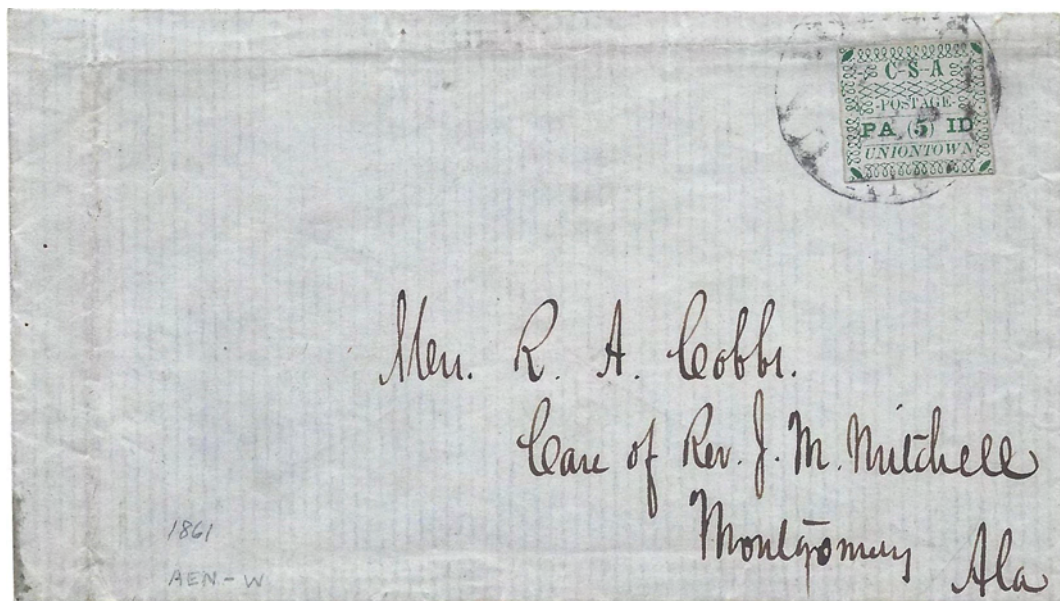 C-S-A
-POSTAGE-
PA (5) ID
UNIONTOWN
Mrs. R. A. Cobbs.
Care of Rev. J. M. Mitchell
Montgomery
Ala
1861
AEN-W